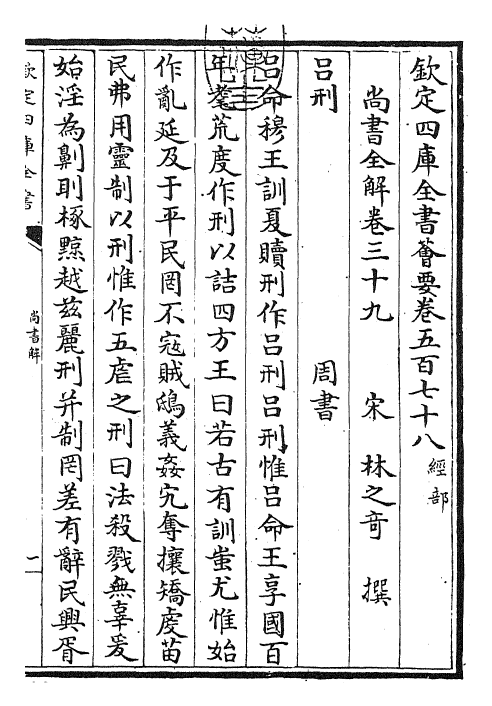 欽定四庫全書薈要卷五百七十八 經部
尚書全解卷三十九 宋 林之奇 撰
呂刑 周書
呂命穆王訓夏贖刑作呂刑呂刑惟呂命王享國百
年耄荒度作刑以詰四方王曰若古有訓蚩尤惟始
作亂延及于平民罔不寇賊鴟義姦宄奪攘矯虔苗
民弗用靈制以刑惟作五虐之刑曰法殺戮無辜爰
始淫為劓刵椓黥越茲麗刑并制罔差有辭民興胥
欽定四庫全書
尚書解
一